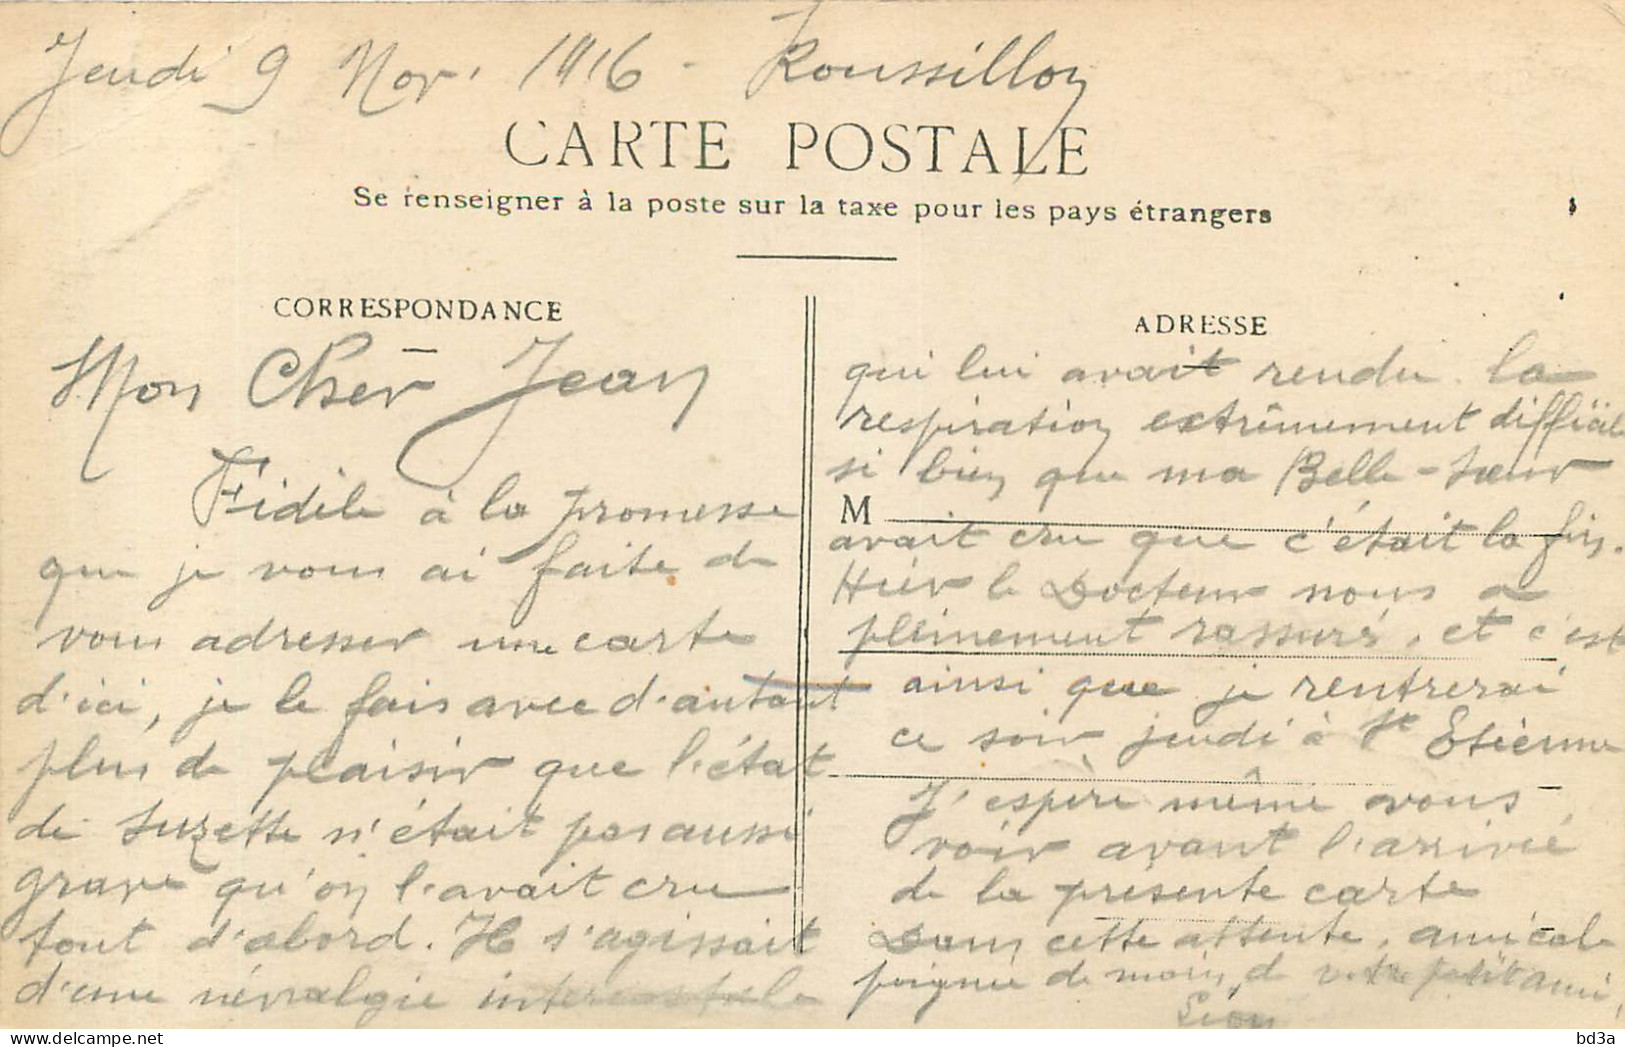 Jeudi 9 Nov. 1916 - Roussillon
CARTE POSTALE
Se renseigner à la poste sur la taxe pour les pays étrangers
CORRESPONDANCE
Mon Cher Jean
Fidèle à la promesse
que je vous ai faite de
vous adresser une carte
d'ici, je le fais avec d'autant
plus de plaisir que l'état
de Suzette n'était pas aussi
grave qu'on l'avait cru
tout d'abord. Il s'agissait
d'une névralgie intercostale
ADRESSE
qui lui avait rendu la
respiration extrêmement difficile
si bien que ma Belle-Sœur
M
avait cru que c'était la fin.
Hier le Docteur nous a
pleinement rassurés, et c'est
ainsi que je rentrerai
ce soir jeudi à St Etienne
J'espère même vous
voir avant l'arrivée
de la présente carte
Dans cette attente, amicale
poignée de main de votre petit ami,
Léon
bd3a